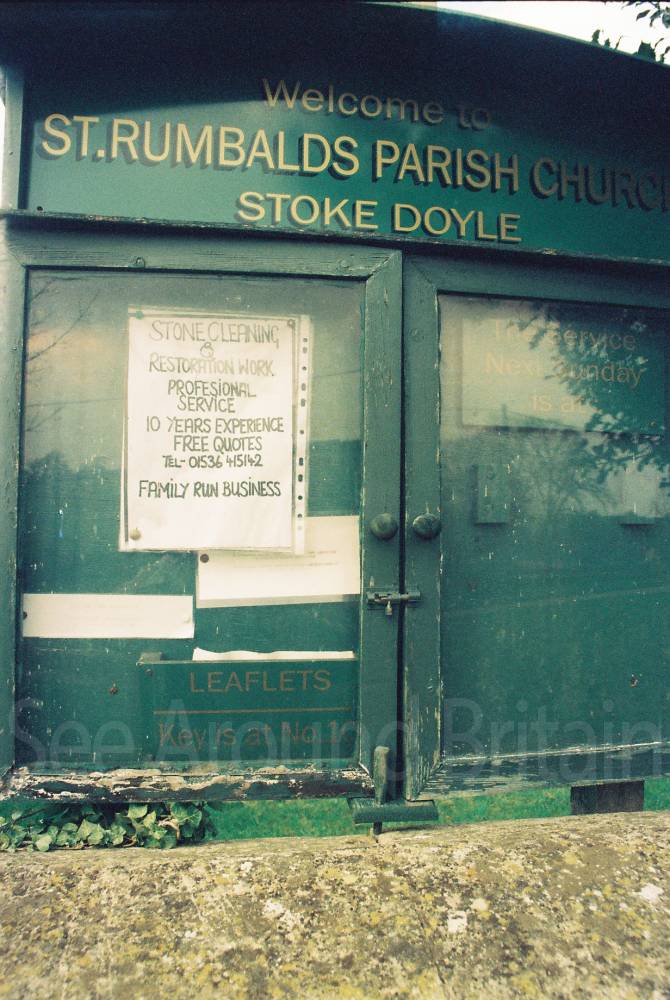 Welcome to
ST.RUMBALDS PARISH CHURCH
STOKE DOYLE
STONE CLEANING
&
RESTORATION WORK
PROFESIONAL
SERVICE
10 YEARS EXPERIENCE
FREE QUOTES
TEL- 01536 415142
FAMILY RUN BUSINESS
The Service
Next Sunday
is at
LEAFLETS
Key is at No.10
See Around Britain